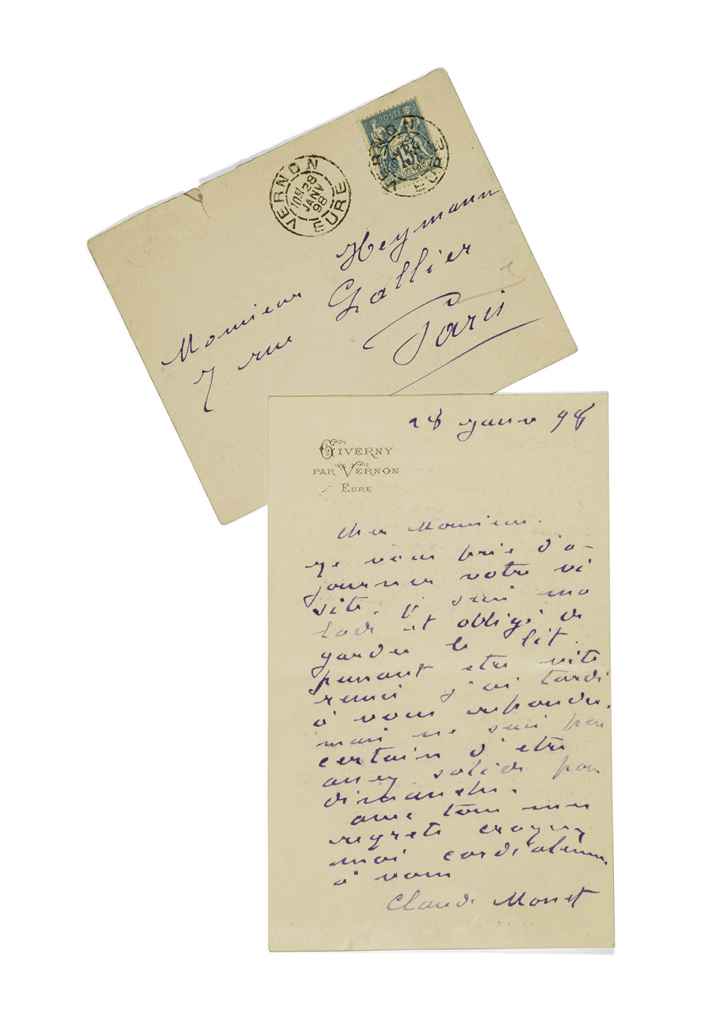 VERNON
10H 28
JANV
98
EURE
VERNON
EURE
15
Monsieur Heymann
7 rue Gallier
Paris
28 janv 98
GIVERNY
PAR VERNON
EURE
cher Monsieur.
je vous prie d'a-
journer votre vi
site. je suis ma
lade et obligé de
garder le lit.
pensant etre vite
remis j'ai tardé
à vous repondre.
mais ne suis pas
certain d'etre
assez solide pour
dimanche.
avec tous mes
regrets croyez
moi cordialement
à vous
Claude Monet